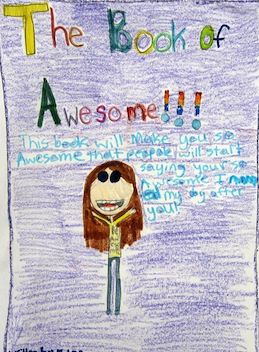 The Book of
Awesome!!!
This book will Make you so
Awesome that people will start
saying your so
Awesome I
my after
you!!